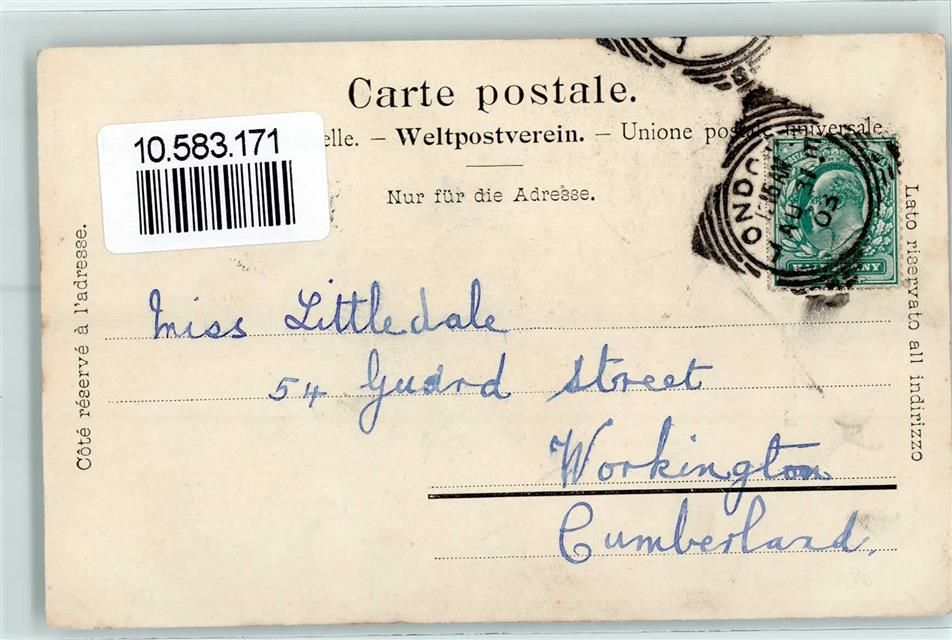 Carte postale.
10.583.171
elle. – Weltpostverein. – Unione postale universale
Nur für die Adresse.
ONDO
AU 31
03
HALFPENNY
Côté réservé à l'adresse.
Lato riservato all indirizzo
Miss Littledale
54 Guard Street
Workington
Cumberland.